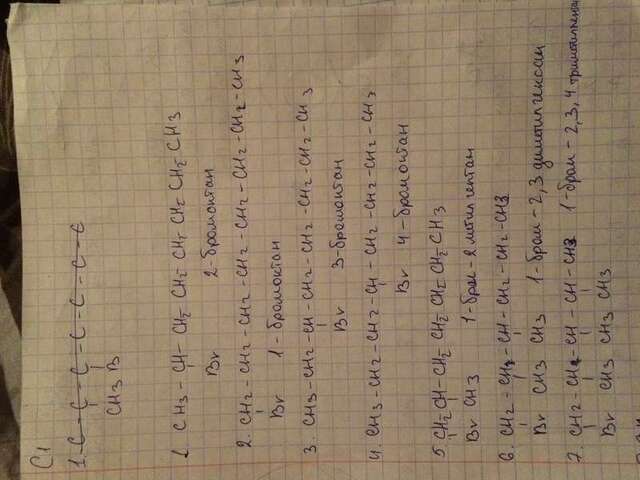 C1
1. C-C-C-C-C-C-C-C
CH3 B
1. CH3-CH-CH2-CH2-CH2-CH2-CH2-CH3
Br 2-бромоктан
2. CH2-CH2-CH2-CH2-CH2-CH2-CH2-CH3
Br 1-бромоктан
3. CH3-CH2-CH-CH2-CH2-CH2-CH2-CH3
Br 3-бромоктан
4. CH3-CH2-CH2-CH-CH2-CH2-CH2-CH3
Br 4-бромоктан
5. CH2-CH-CH2-CH2-CH2-CH2-CH3
Br CH3 1-бром-2 метилгептан
6. CH2-CH-CH-CH2-CH2-CH3
Br CH3 CH3 1-бром-2,3 диметилгексан
7. CH2-CH-CH-CH-CH3 1-бром-2,3,4 триметилпентан
Br CH3 CH3 CH3